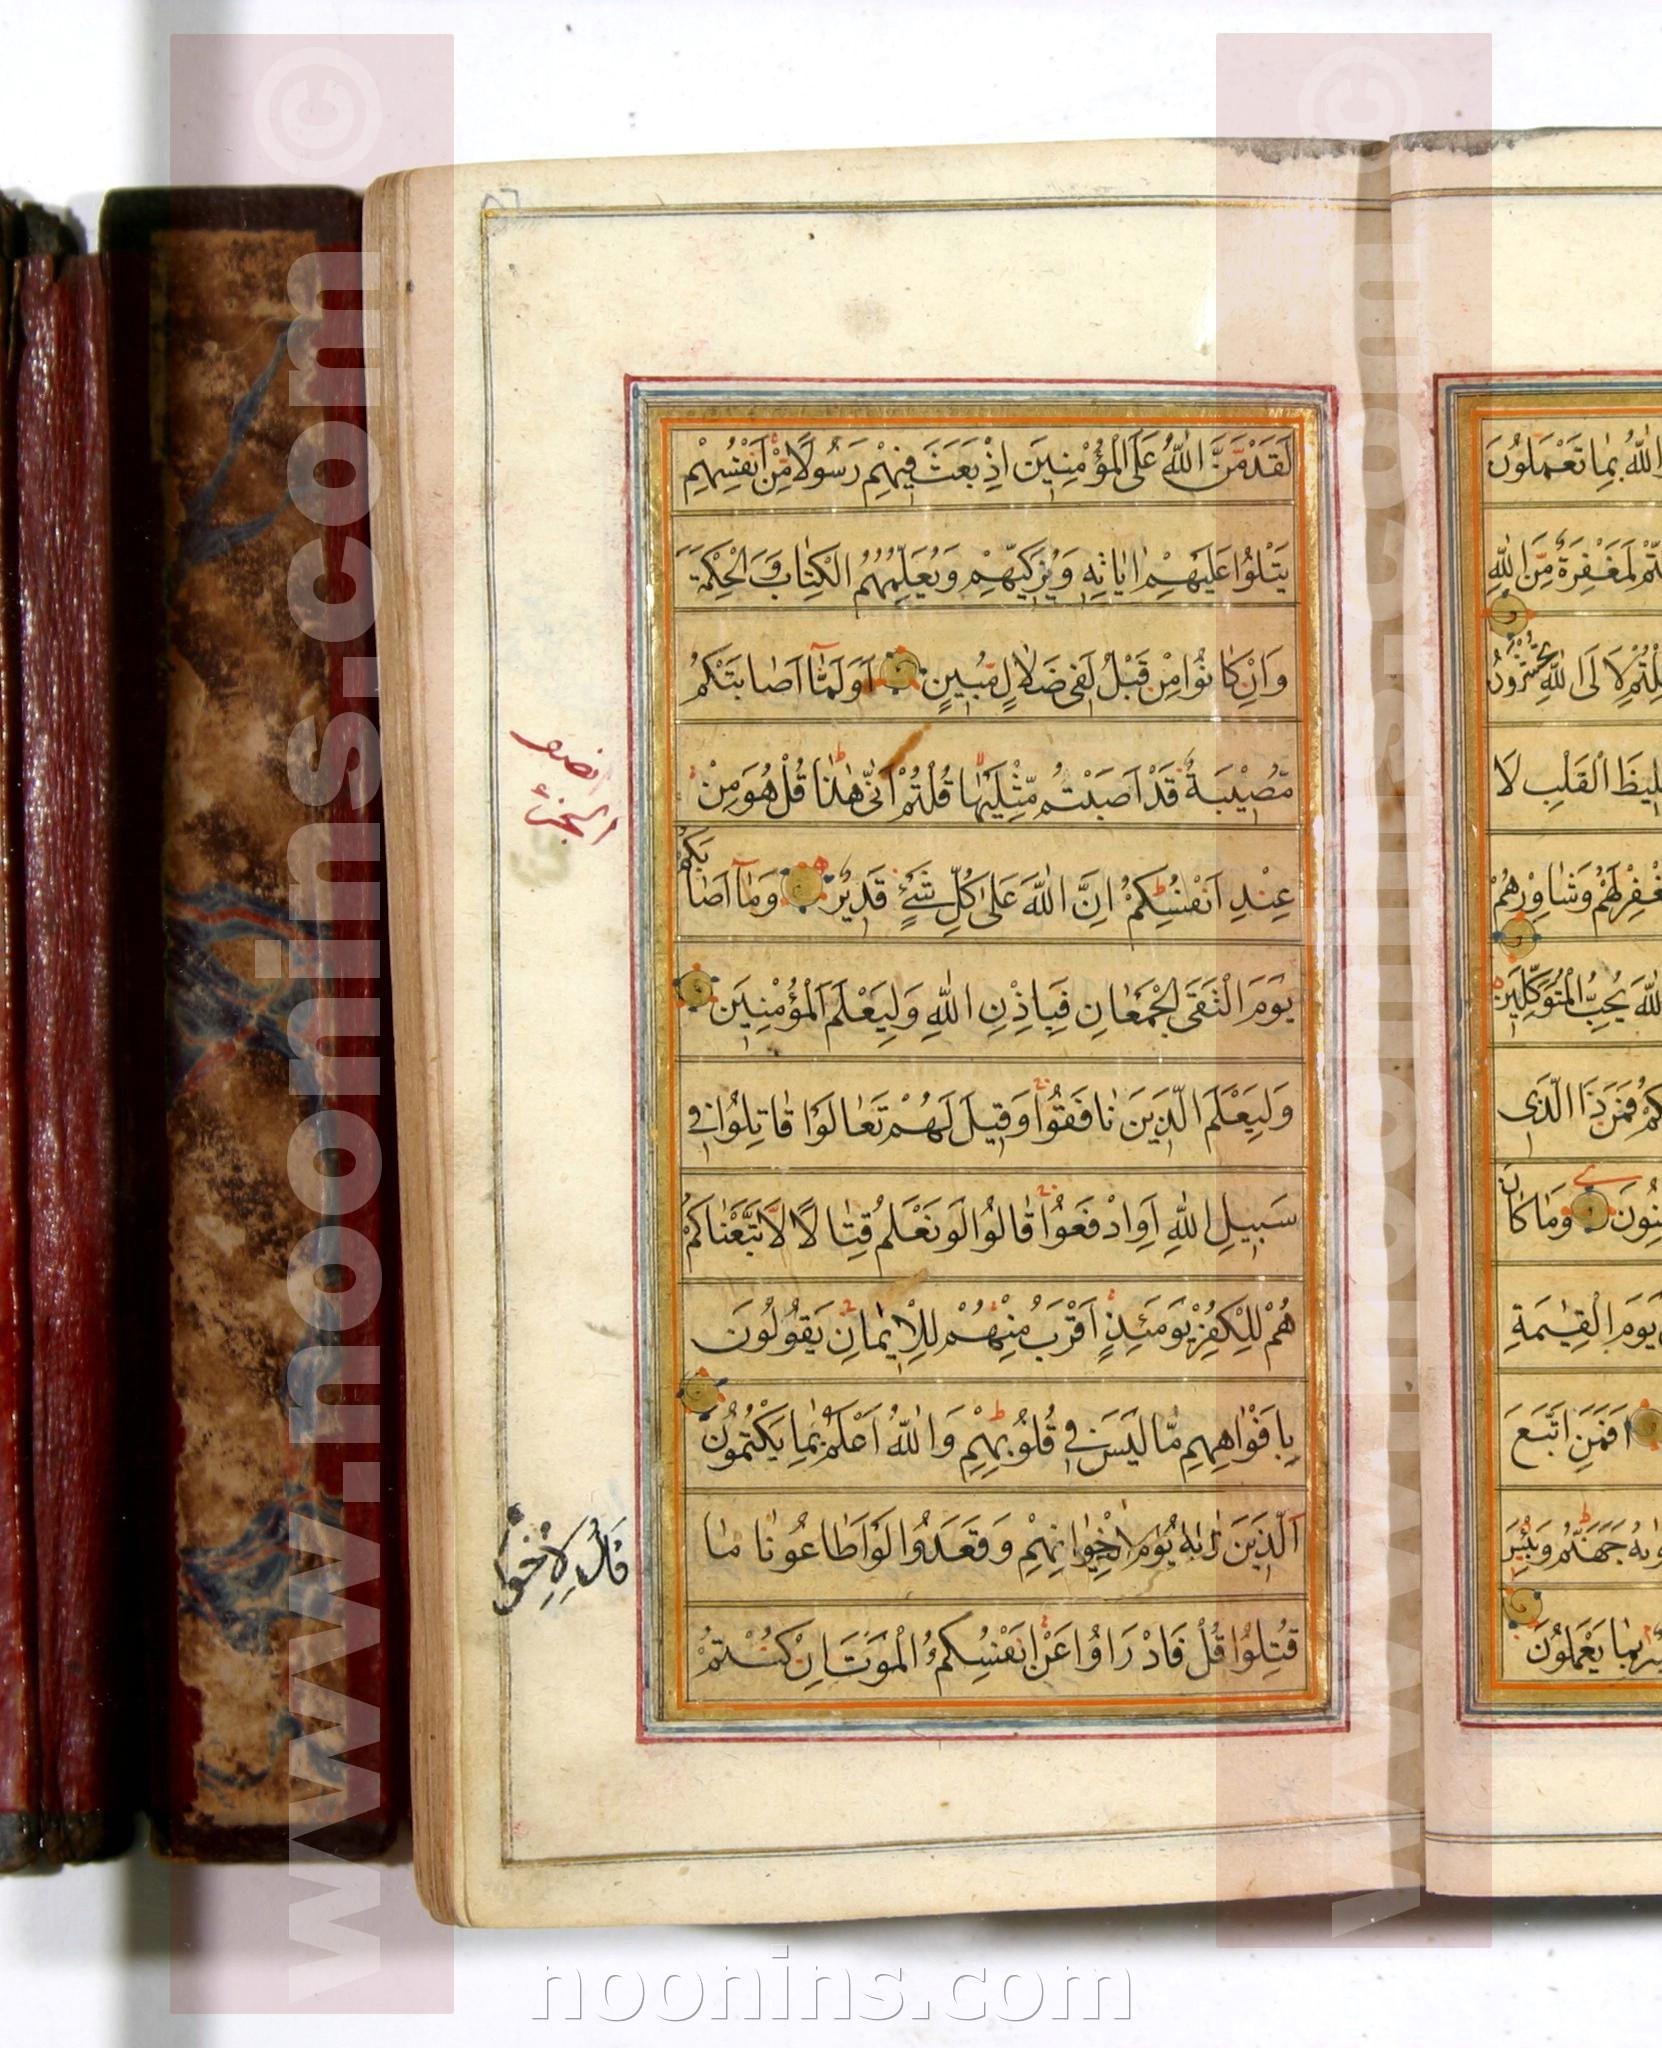 لَقَدْ مَنَّ اللّٰهُ عَلَى الْمُؤْمِنِينَ اِذْ بَعَثَ فِيهِمْ رَسُولًا مِنْ اَنْفُسِهِمْ
يَتْلُوا عَلَيْهِمْ اٰيَاتِهِ وَيُزَكِّيهِمْ وَيُعَلِّمُهُمُ الْكِتَابَ وَالْحِكْمَةَ
وَاِنْ كَانُوا مِنْ قَبْلُ لَفِي ضَلَالٍ مُبِينٍ اَوَلَمَّا اَصَابَتْكُمْ
مُصِيْبَةٌ قَدْ اَصَبْتُمْ مِثْلَيْهَا قُلْتُمْ اَنّٰى هٰذَا قُلْ هُوَ مِنْ
عِنْدِ اَنْفُسِكُمْ اِنَّ اللّٰهَ عَلٰى كُلِّ شَيْءٍ قَدِيرٌ وَمَآ اَصَابَكُمْ
يَوْمَ الْتَقَى الْجَمْعَانِ فَبِاِذْنِ اللّٰهِ وَلِيَعْلَمَ الْمُؤْمِنِينَ
وَلِيَعْلَمَ الَّذِينَ نَافَقُوا وَقِيلَ لَهُمْ تَعَالَوْا قَاتِلُوا فِي
سَبِيلِ اللّٰهِ اَوِ ادْفَعُوا قَالُوا لَوْ نَعْلَمُ قِتَالًا لَاتَّبَعْنَاكُمْ
هُمْ لِلْكُفْرِ يَوْمَئِذٍ اَقْرَبُ مِنْهُمْ لِلْاِيمَانِ يَقُولُونَ
بِاَفْوَاهِهِمْ مَّا لَيْسَ فِي قُلُوبِهِمْ وَاللّٰهُ اَعْلَمُ بِمَا يَكْتُمُونَ
اَلَّذِينَ لِاِخْوَانِهِمْ وَقَعَدُوا لَوْ اَطَاعُونَا مَا
قُتِلُوا قُلْ فَادْرَاُوا عَنْ اَنْفُسِكُمُ الْمَوْتَ اِنْ كُنْتُمْ
الجزء
قَالُوا لِاِخْوَا
وَاللّٰهُ بِمَا تَعْمَلُونَ
لَمَغْفِرَةٌ مِنَ اللّٰهِ
لَاِلَى اللّٰهِ تُحْشَرُونَ
غَلِيظَ الْقَلْبِ لَا
لَهُمْ وَشَاوِرْهُمْ
اللّٰهَ يُحِبُّ الْمُتَوَكِّلِينَ
فَمَنْ ذَا الَّذِي
وَمَا كَانَ
يَوْمَ الْقِيٰمَةِ
اَفَمَنِ اتَّبَعَ
جَهَنَّمُ وَبِئْسَ
بِمَا يَعْمَلُونَ
www.noonins.com ©
noonins.com